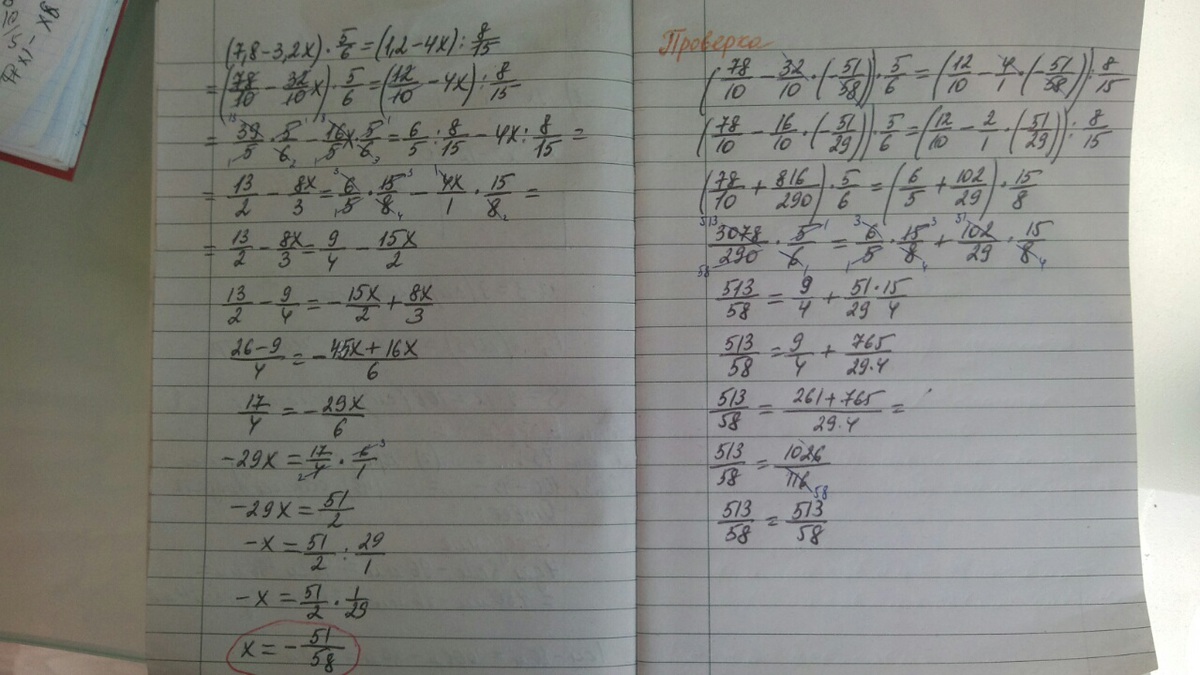 (7,8-3,2x)·5/6=(1,2-4x):8/15
=(78/10-32/10x)·5/6=(12/10-4x):8/15
=39/5·5/6-16/5x·5/6=6/5:8/15-4x:8/15=
=13/2-8x/3=6/5·15/8-4x/1·15/8=
=13/2-8x/3=9/4-15x/2
13/2-9/4=-15x/2+8x/3
26-9/4=-45x+16x/6
17/4=-29x/6
-29x=17/4·6/1
-29x=51/2
-x=51/2:29/1
-x=51/2·1/29
x=-51/58
Проверка
(78/10-32/10·(-51/58))·5/6=(12/10-4/1·(-51/58)):8/15
(78/10-16/10·(-51/29))·5/6=(12/10-2/1·(51/29)):8/15
(78/10+816/290)·5/6=(6/5+102/29)·15/8
3078/290·5/6=6/5·15/8+102/29·15/8
513/58=9/4+51·15/29 4
513/58=9/4+765/29·4
513/58=261+765/29·4=
513/58=1026/116
513/58=513/58